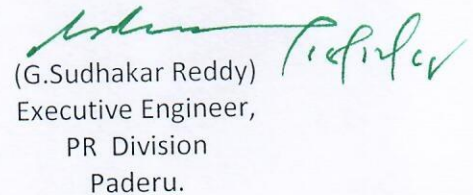 (G.Sudhakar Reddy)
Executive Engineer,
PR Division
Paderu.